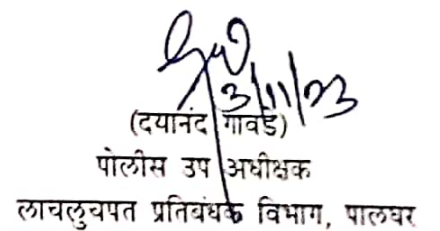 3/11/23
(दयानंद गावडे)
पोलीस उप अधीक्षक
लाचलुचपत प्रतिबंधक विभाग, पालघर